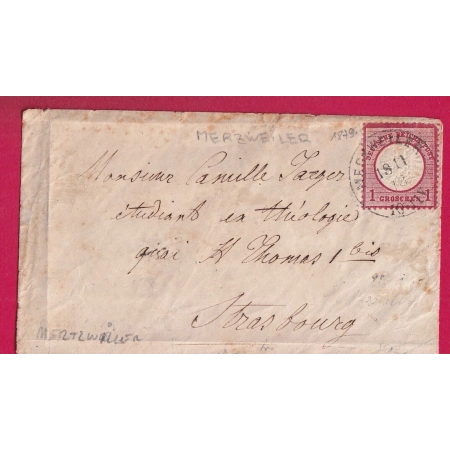 MERZWEILER 1873.
DEUTSCHE REICHS-POST
18 11
1 GROSCHEN 1
Monsieur Camille Jaeger
étudiant en théologie
quai St Thomas 1 bis
Strasbourg
MERTZWILLER